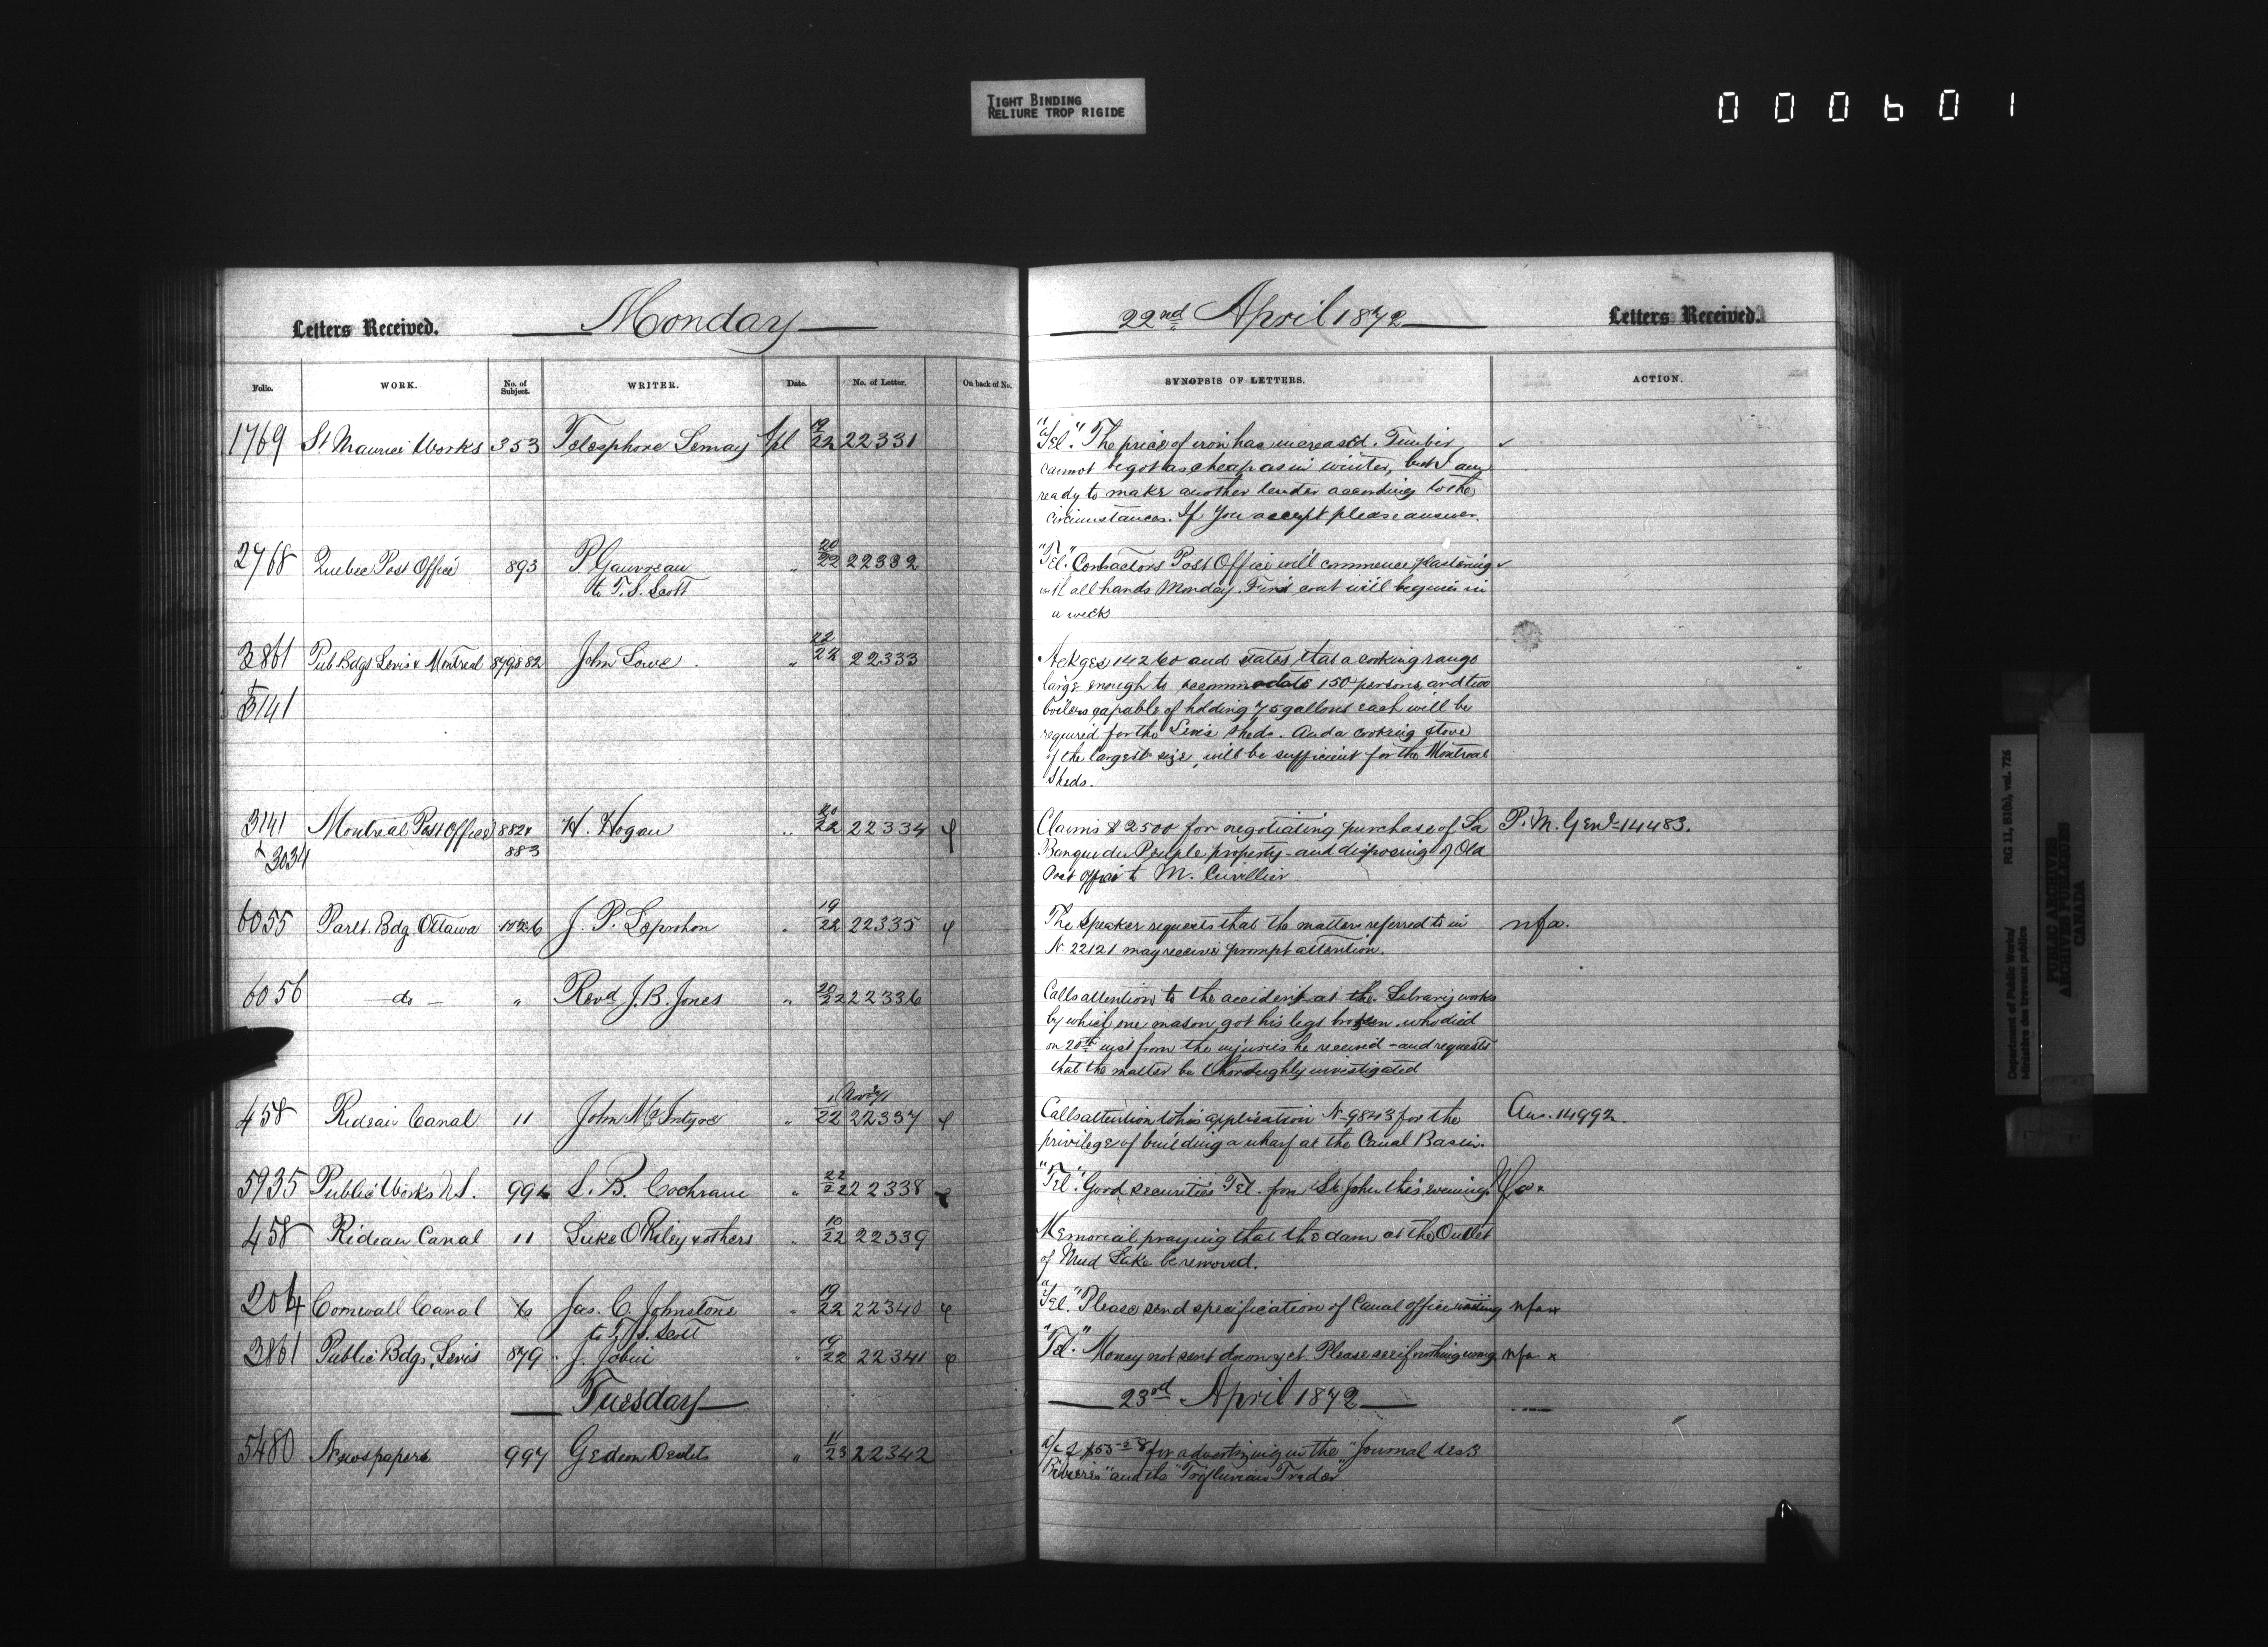 TIGHT BINDING
RELIURE TROP RIGIDE
000601
Letters Received. Monday
Folio. WORK. No. of Subject. WRITER. Date. No. of Letter. On back of No.
1769 St Maurice Works 353 Telesphore Lemay Apl 19/22 22331
2768 Quebec Post Office 893 P. Gauvreau " 20/22 22332
to T. S. Scott
3861 Pub Bdgs Levis & Montreal 879882 John Lowe. " 22/22 22333
3141
3141 Montreal Post Office 882 & H. Hogan " 20/22 22334 φ
& 3034 883
6055 Parlt. Bdg. Ottawa J. P. Leprohon " 19/22 22335 φ
6056 - do - " Revd J. B. Jones " 20/22 22336
458 Rideau Canal 11 John McIntyre " 22 22337 φ
5935 Public Works N.S. 994 S. B. Cochrane " 22/22 22338
458 Rideau Canal 11 Luke O'Riley & others " 10/22 22339
204 Cornwall Canal Jas. C. Johnstone " 19/22 22340 φ
to T. S. Scott
3861 Public Bdgs, Levis 879 J. Jobin " 19/22 22341 φ
Tuesday
5480 Newspapers 997 Gedeon Desilets " 11/23 22342
22nd April 1872 Letters Received.
SYNOPSIS OF LETTERS. ACTION.
"Tel." The price of iron has increased. Timber ✓
cannot be got as cheap as in winter, but I am
ready to make another tender according to the
circumstances. If you accept please answer.
"Tel." Contractors Post Office will commence plastering ✓
with all hands Monday. First coat will begin in
a week
Ackges 14260 and states that a cooking range
large enough to accommodate 150 persons, and two
boilers capable of holding 75 gallons each will be
required for the Levis sheds. And a cooking stove
of the largest size, will be sufficient for the Montreal
Sheds.
Claims $2500 for negotiating purchase of La P. M. Genl 14483.
Banque du Peuple property - and disposing of Old
Post Office to M. Cuvillier
The Speaker requests that the matters referred to in nfa.
No 22121 may receive prompt attention.
Calls attention to the accident at the Library works
by which one mason got his legs broken, who died
on 20th inst from the injuries he received - and requests
that the matter be thoroughly investigated
Calls attention to his application No 9843 for the Ans. 14992.
privilege of building a wharf at the Canal Basin.
"Tel." Good securities Tel. from St. John this evening Nfa x
Memorial praying that the dam at the Outlet
of Mud Lake be removed.
"Tel." Please send specification of Canal office nfa x
"Tel." Money not sent down yet. Please see if nothing wrong nfa x
23rd April 1872
a/c of for advertizing in the "Journal des 3
Rivieres" and the "Trifluvian Trader"
Department of Public Works/
Ministère des travaux publics
RG 11, B1(b), vol. 726
PUBLIC ARCHIVES
ARCHIVES PUBLIQUES
CANADA